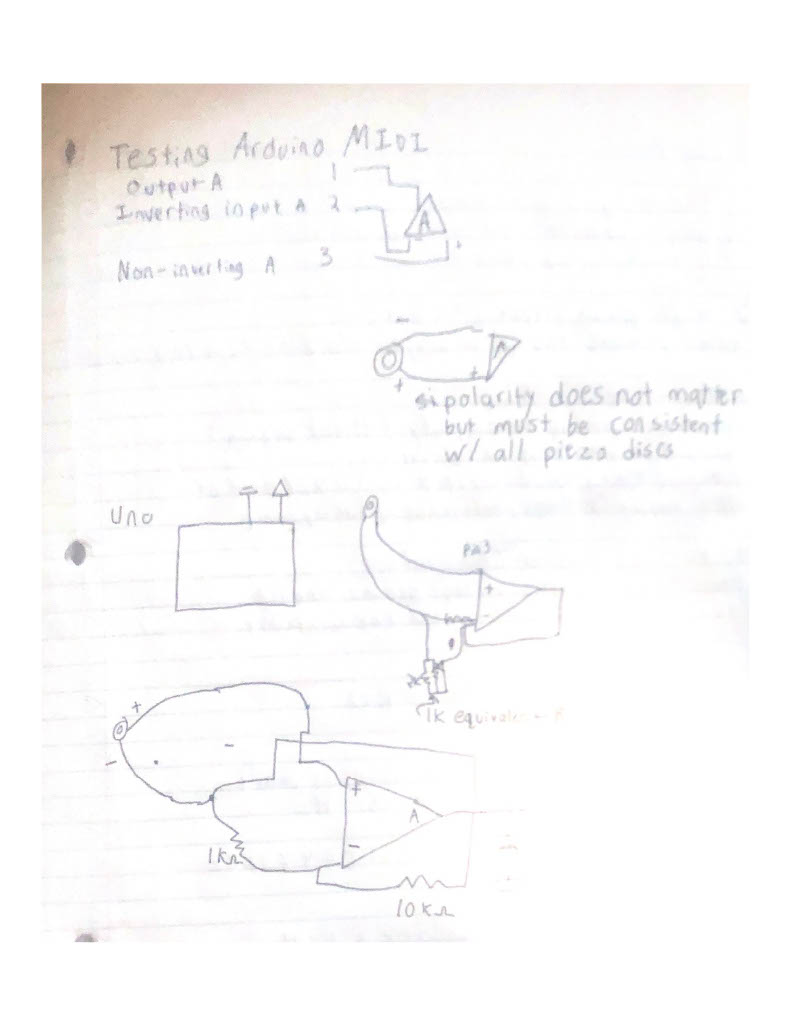 Testing Arduino MIDI
Output A 1
Inverting input A 2
A
Non-inverting A 3 +
-
A
+ +
polarity does not matter
but must be consistent
w/ all piezo discs
Uno
+
-
1k
+
+
- -
A
-
1kΩ
10kΩ